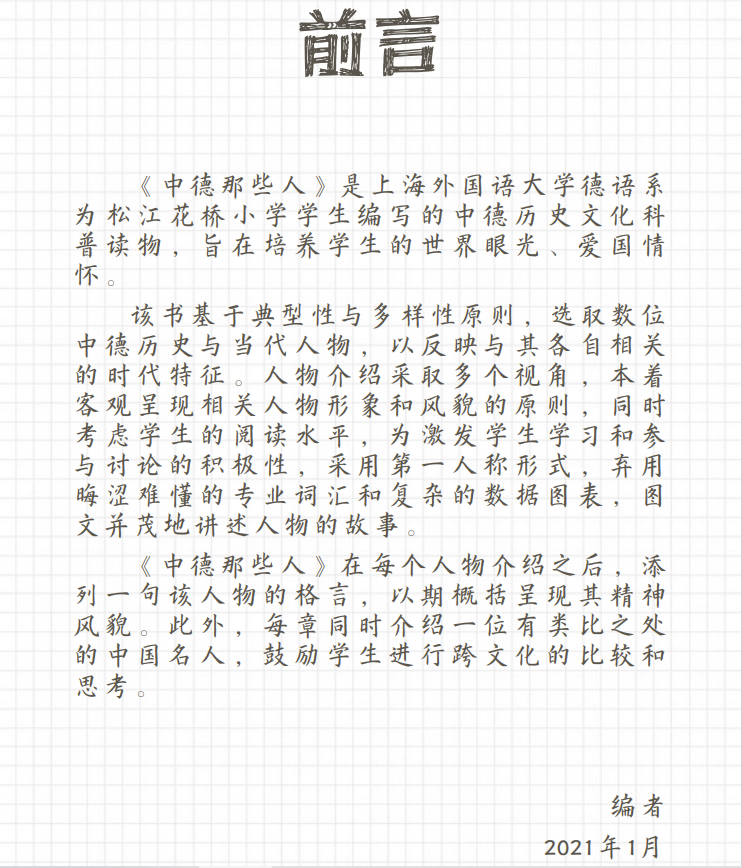 前言
《中德那些人》是上海外国语大学德语系
为松江花桥小学学生编写的中德历史文化科
普读物，旨在培养学生的世界眼光、爱国情
怀。
该书基于典型性与多样性原则，选取数位
中德历史与当代人物，以反映与其各自相关
的时代特征。人物介绍采取多个视角，本着
客观呈现相关人物形象和风貌的原则，同时
考虑学生的阅读水平，为激发学生学习和参
与讨论的积极性，采用第一人称形式，弃用
晦涩难懂的专业词汇和复杂的数据图表，图
文并茂地讲述人物的故事。
《中德那些人》在每个人物介绍之后，添
列一句该人物的格言，以期概括呈现其精神
风貌。此外，每章同时介绍一位有类比之处
的中国名人，鼓励学生进行跨文化的比较和
思考。
编者
2021年1月